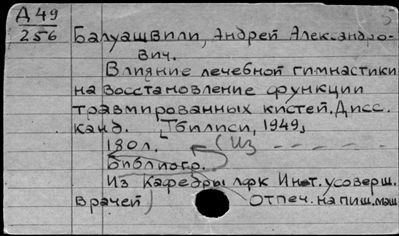 Д49
256
Балуашвили, Андрей Александро-
вич.
Влияние лечебной гимнастики
на восстановление функции
травмированных кистей. Дисс.
канд. Тбилиси, 1949,
180л. (Из
библиогр.
Из Кафедры лфк Инст. усоверш.
врачей) Отпеч. на пиш. маш